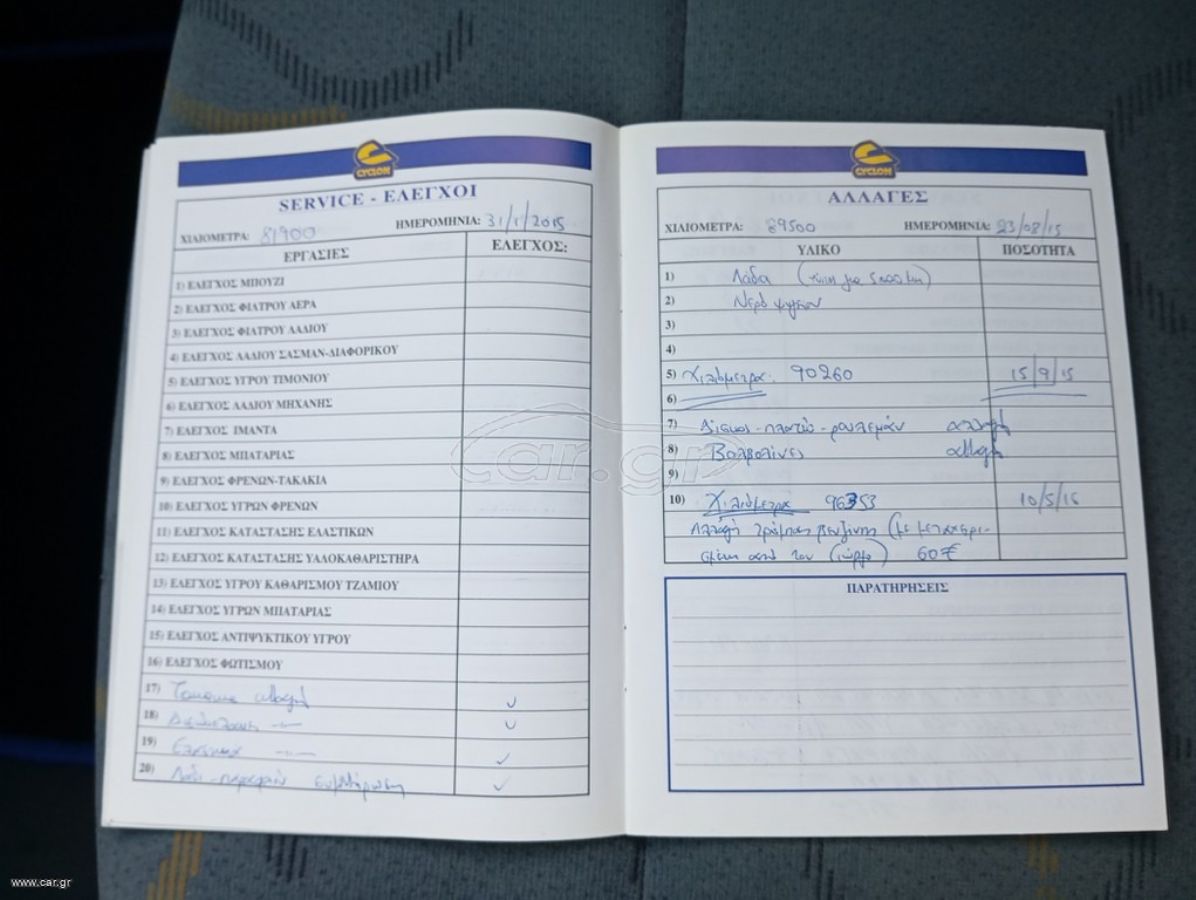 CYCLON
SERVICE - ΕΛΕΓΧΟΙ
ΧΙΛΙΟΜΕΤΡΑ: 81900 ΗΜΕΡΟΜΗΝΙΑ: 31/1/2015
ΕΡΓΑΣΙΕΣ ΕΛΕΓΧΟΣ:
1) ΕΛΕΓΧΟΣ ΜΠΟΥΖΙ
2) ΕΛΕΓΧΟΣ ΦΙΛΤΡΟΥ ΑΕΡΑ
3) ΕΛΕΓΧΟΣ ΦΙΛΤΡΟΥ ΛΑΔΙΟΥ
4) ΕΛΕΓΧΟΣ ΛΑΔΙΟΥ ΣΑΣΜΑΝ-ΔΙΑΦΟΡΙΚΟΥ
5) ΕΛΕΓΧΟΣ ΥΓΡΟΥ ΤΙΜΟΝΙΟΥ
6) ΕΛΕΓΧΟΣ ΛΑΔΙΟΥ ΜΗΧΑΝΗΣ
7) ΕΛΕΓΧΟΣ ΙΜΑΝΤΑ
8) ΕΛΕΓΧΟΣ ΜΠΑΤΑΡΙΑΣ
9) ΕΛΕΓΧΟΣ ΦΡΕΝΩΝ-ΤΑΚΑΚΙΑ
10) ΕΛΕΓΧΟΣ ΥΓΡΩΝ ΦΡΕΝΩΝ
11) ΕΛΕΓΧΟΣ ΚΑΤΑΣΤΑΣΗΣ ΕΛΑΣΤΙΚΩΝ
12) ΕΛΕΓΧΟΣ ΚΑΤΑΣΤΑΣΗΣ ΥΑΛΟΚΑΘΑΡΙΣΤΗΡΑ
13) ΕΛΕΓΧΟΣ ΥΓΡΟΥ ΚΑΘΑΡΙΣΜΟΥ ΤΖΑΜΙΟΥ
14) ΕΛΕΓΧΟΣ ΥΓΡΩΝ ΜΠΑΤΑΡΙΑΣ
15) ΕΛΕΓΧΟΣ ΑΝΤΙΨΥΚΤΙΚΟΥ ΥΓΡΟΥ
16) ΕΛΕΓΧΟΣ ΦΩΤΙΣΜΟΥ
17) αλλαγή ✓
18) ✓
19) ✓
20) Λάδι - συμπλήρωση ✓
CYCLON
ΑΛΛΑΓΕΣ
ΧΙΛΙΟΜΕΤΡΑ: 89500 ΗΜΕΡΟΜΗΝΙΑ: 23/08/15
ΥΛΙΚΟ ΠΟΣΟΤΗΤΑ
1) Λάδια
2) Νερό ψυγείου
3)
4)
5) Χιλιόμετρα: 90260 15/9/15
6)
7) Δίσκος-πλατώ-ρουλεμάν αλλαγή
8) Βαλβολίνες αλλαγή
9)
10) Χιλιόμετρα 96353 10/5/16
Αλλαγή τρόμπας βενζίνης (με μεταχειρι-
σμένη από τον Γιώργο) 60€
ΠΑΡΑΤΗΡΗΣΕΙΣ
car.gr
www.car.gr